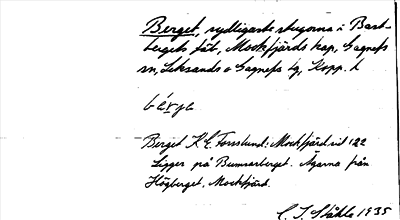 Berget, sydligaste stugorna i Bast-
bergets fäb, Mockfjärds kap, Gagnefs
sn, Leksands o Gagnefs tg, Kopp. l
bärja
Berget K. E. Forsslund: Mockfjärd sid 122
Ligger på Bumsarberget. Ägarna från
Högberget, Mockfjärd.
C. I. Ståhle 1935